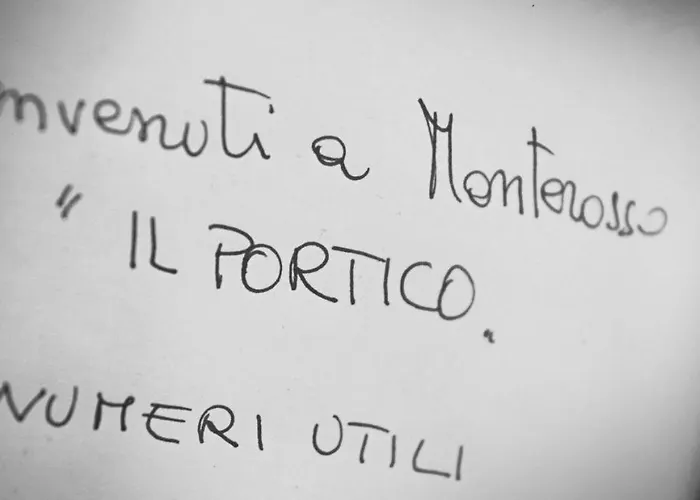 nvenuti a Monterosso
" IL PORTICO "
NUMERI UTILI